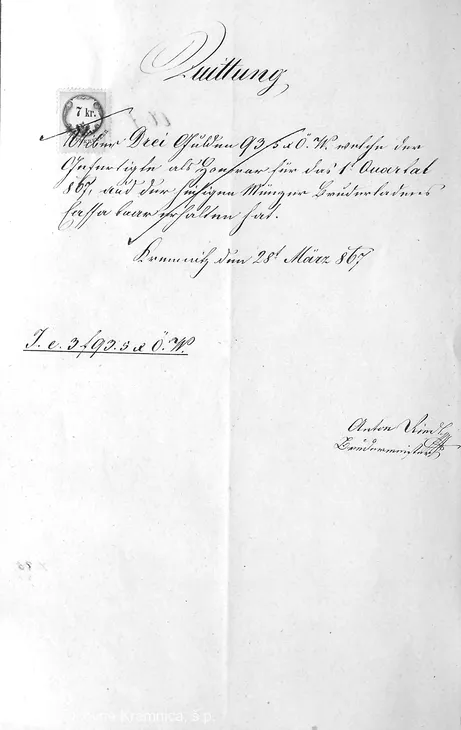 Quittung
7 kr.
Ueber Drei Gulden 93,5 x Ö. W. welche der
Gefertigte als Honorar für das 1t Quartal
867, aus der hiesigen Münzer Bruderladens
Cassa baar erhalten hat.
Kremnitz den 28t März 867
I. e. 3 f 93.5 x Ö. W.
Anton
Brudermeister
Kremnica, š.p.